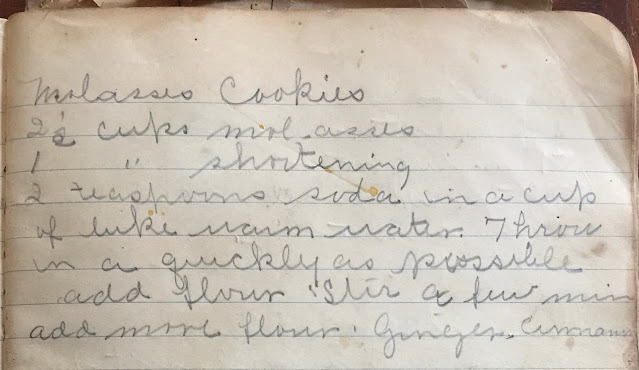 Molasses Cookies
cups molasses
1 " shortening
2 teaspoons soda in a cup
of luke warm water. Throw
in a quickly as possible
add flour. Stir a few min
add more flour. Ginger, Cinnamon